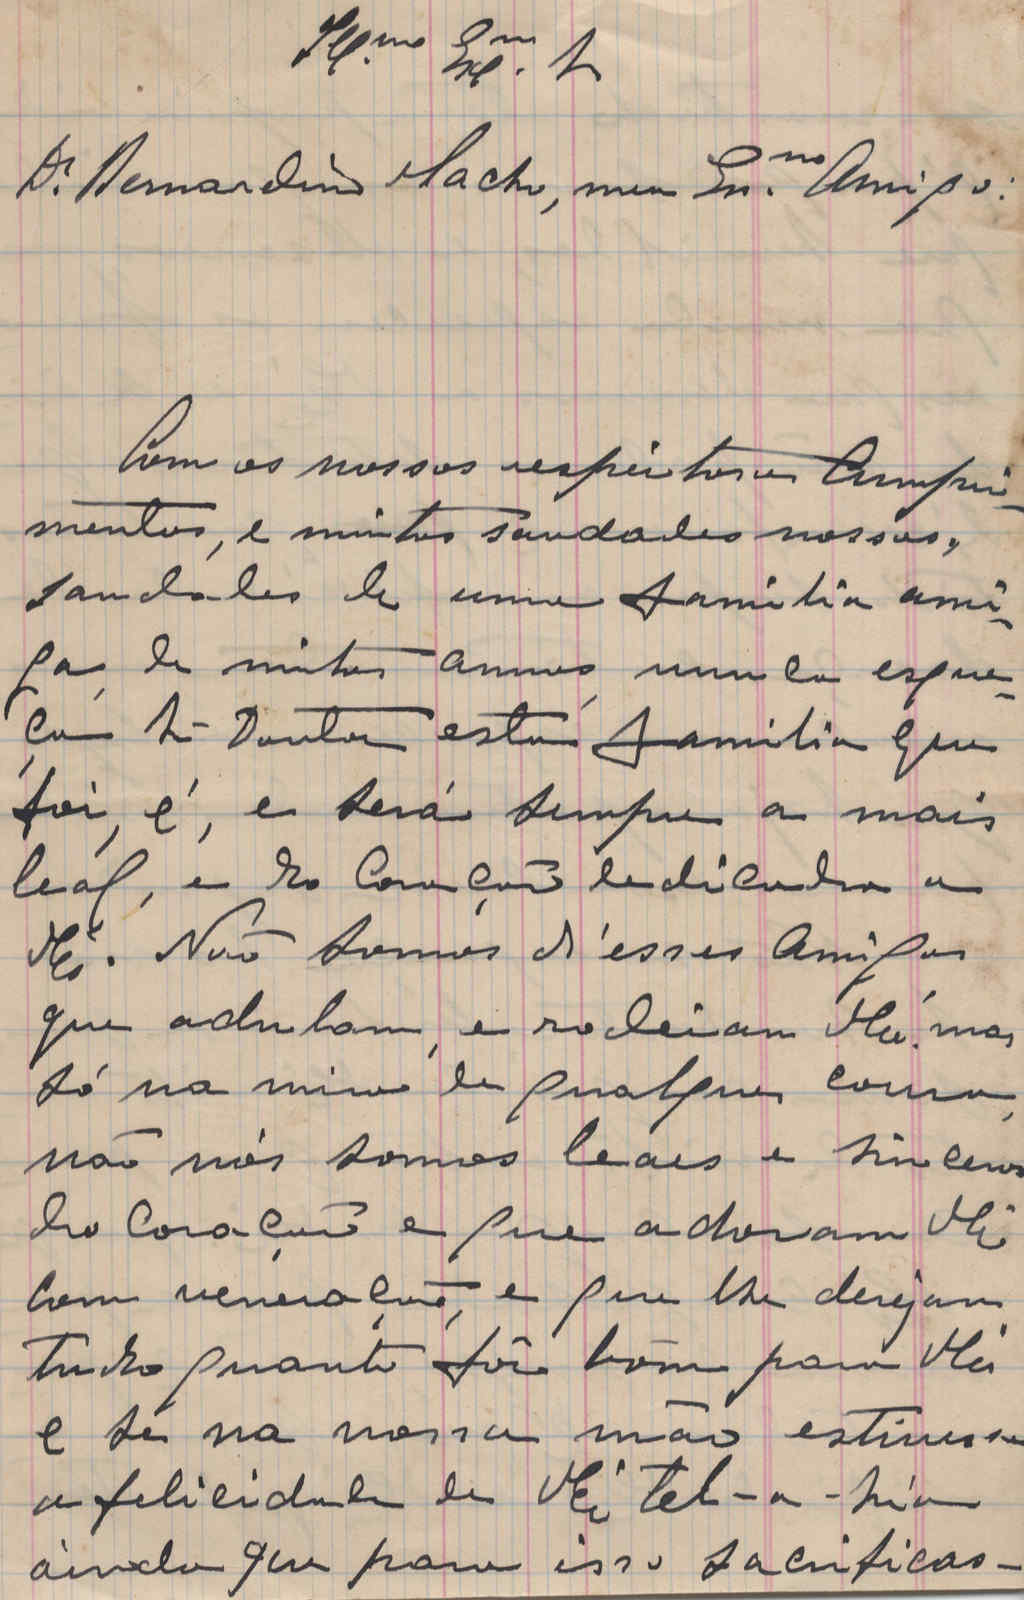 Ill.mo Ex.mo Sr
Dr. Bernardino Machado, meu Ex.mo Amigo:
Com os nossos respeitosos Cumpri-
mentos, e muitas saudades nossas,
saudades de uma familia ami-
ga, de muitos annos, nunca esque-
ça Sr Doutor está familia que
foi, é, e será sempre a mais
leal, e do Coração dedicada a
V.Ex. Não somos d'esses Amigos
que adulam, e rodeiam V.Ex. mas
só na mira de qualquer cousa,
não nós somos leaes e sinceros
do Coração e que adoram V.Ex
com veneração, e que lhe desejam
tudo quanto fôr bôm para V.Ex
e se na nossa mão estivesse
a felicidade de V.Ex tel-a-hia
ainda que para isso sacrificas-